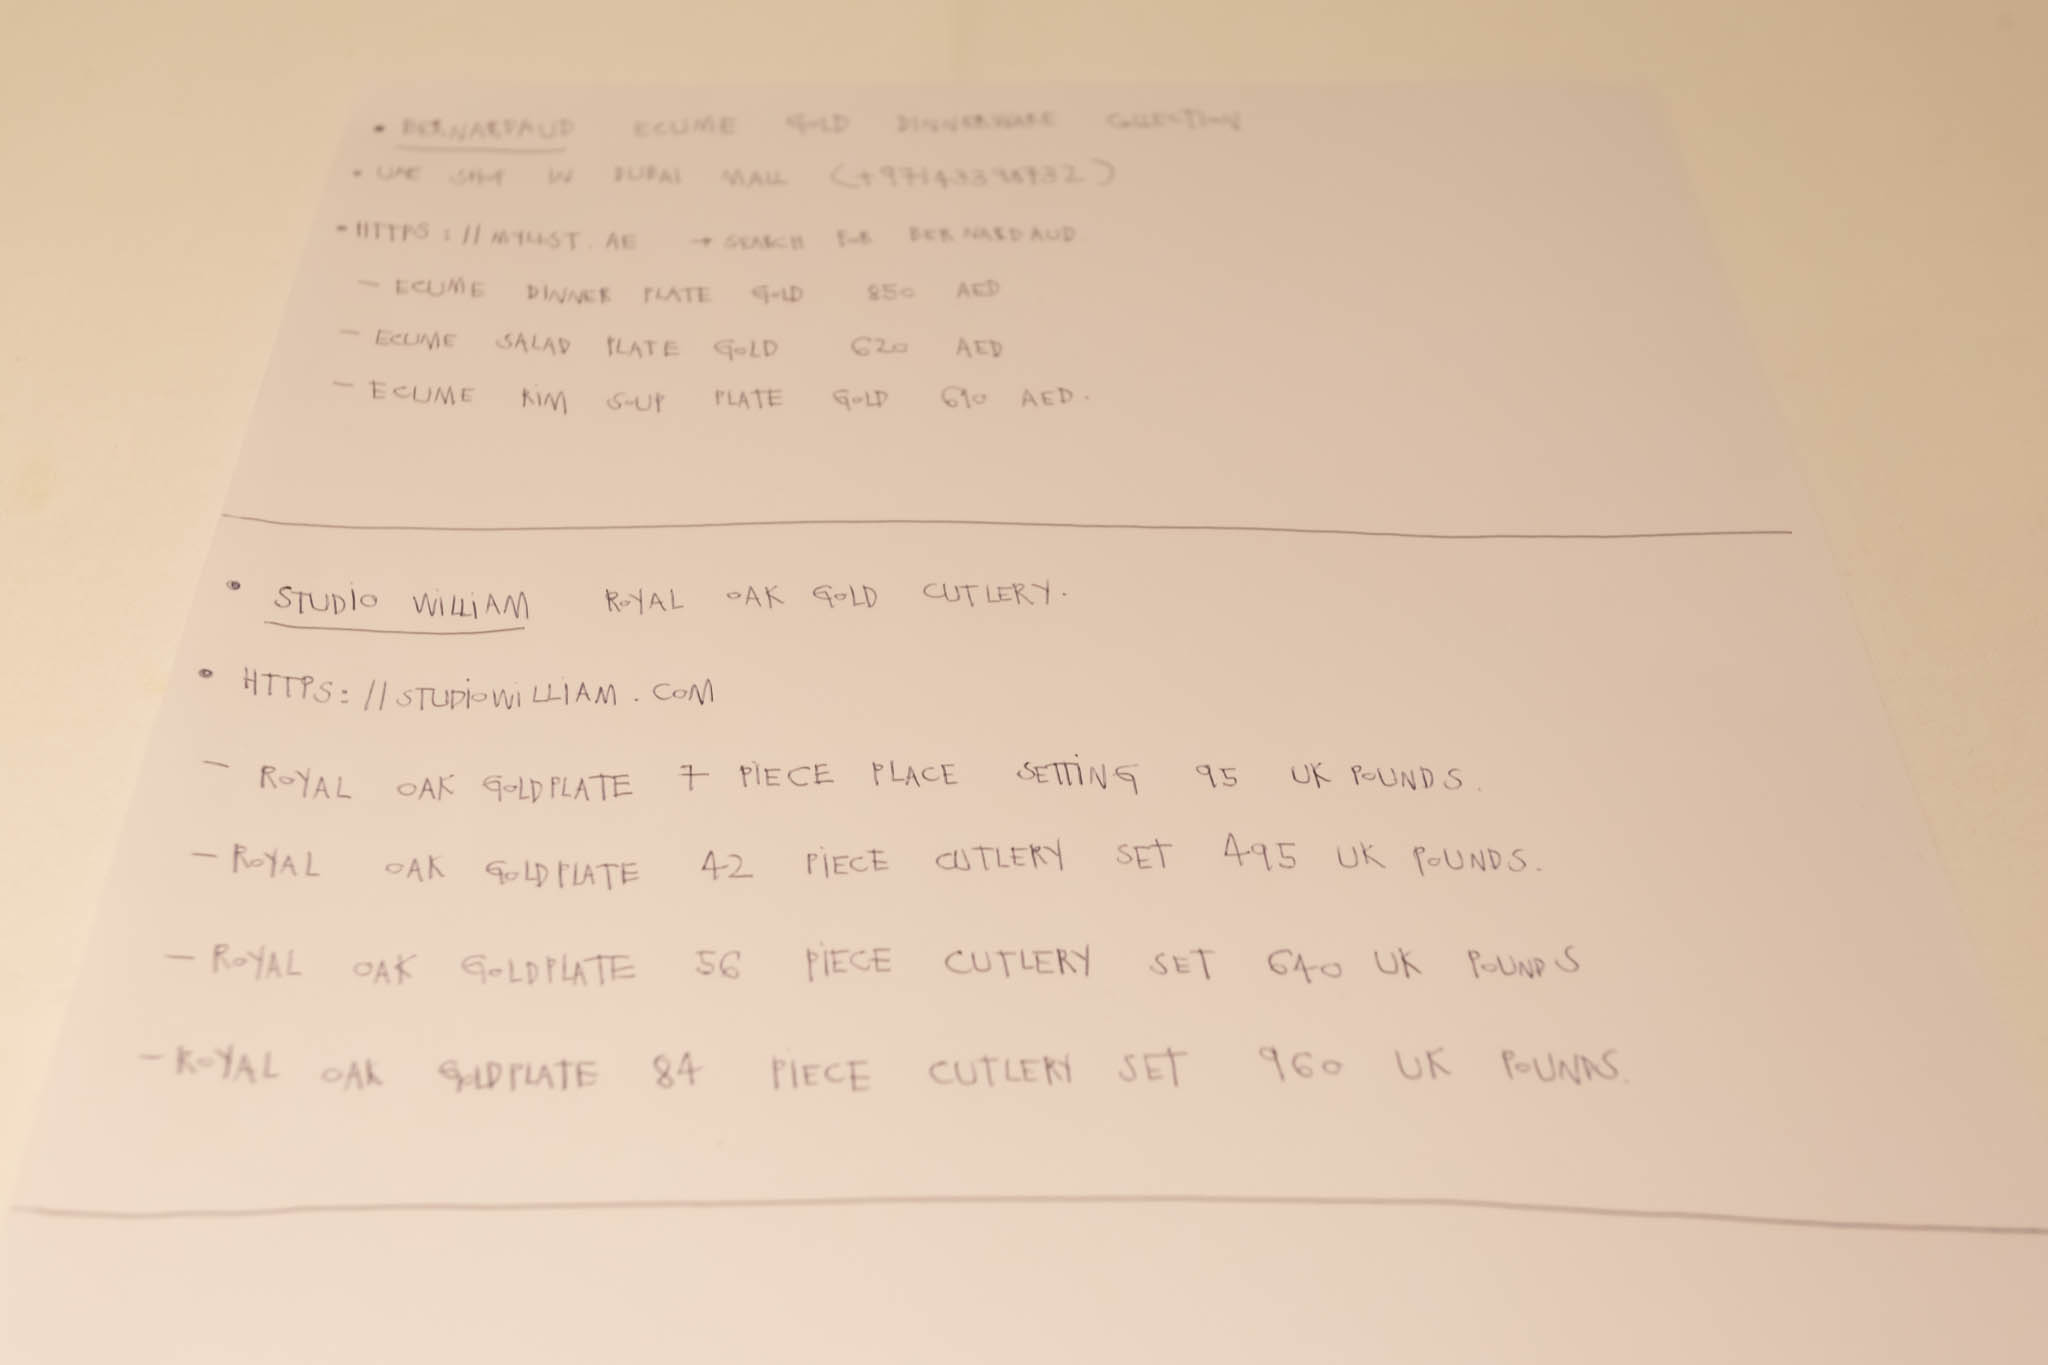 • BERNARDAUD ECUME GOLD DINNERWARE COLLECTION
• UAE SHOP IN DUBAI MALL
• HTTPS://MYLIST.AE → SEARCH FOR BERNARDAUD
– ECUME DINNER PLATE GOLD 850 AED
– ECUME SALAD PLATE GOLD 620 AED
– ECUME RIM SOUP PLATE GOLD 690 AED.
• STUDIO WILLIAM ROYAL OAK GOLD CUTLERY.
• HTTPS://STUDIOWILLIAM.COM
– ROYAL OAK GOLDPLATE 7 PIECE PLACE SETTING 95 UK POUNDS.
– ROYAL OAK GOLDPLATE 42 PIECE CUTLERY SET 495 UK POUNDS.
– ROYAL OAK GOLDPLATE 56 PIECE CUTLERY SET 640 UK POUNDS
– ROYAL OAK GOLDPLATE 84 PIECE CUTLERY SET 960 UK POUNDS.